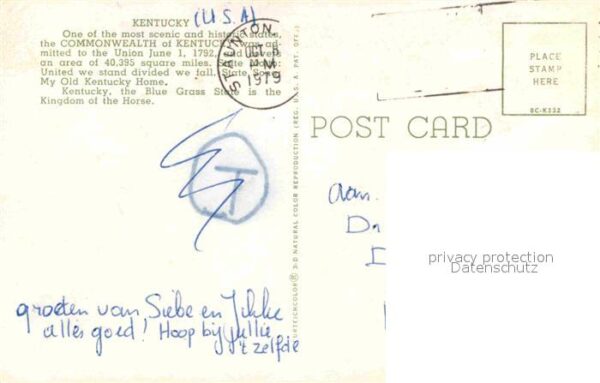 KENTUCKY (U.S.A)
One of the most scenic and historic states,
the COMMONWEALTH of KENTUCKY was ad-
mitted to the Union June 1, 1792, and covers
an area of 40,395 square miles. State
United we stand divided we fall. State Song:
My Old Kentucky Home.
Kentucky, the Blue Grass State is the
Kingdom of the Horse.
OCT 5
PM
1979
PLACE
STAMP
HERE
8C-K332
POST CARD
T
Aan.
privacy protection
Datenschutz
groeten van Siebe en Jikke
alles goed! Hoop bij jullie
't zelfde
3-D NATURAL COLOR REPRODUCTION (REG. U.S.A. PAT. OFF.)